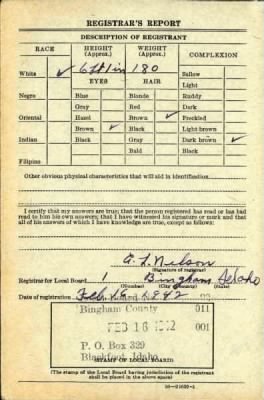 REGISTRAR'S REPORT
DESCRIPTION OF REGISTRANT
RACE HEIGHT (Approx.) WEIGHT (Approx.) COMPLEXION
White ✓ 6 ft 1 in 180 Sallow
EYES HAIR Light
Negro Blue Blonde Ruddy
Gray Red Dark
Oriental Hazel Brown ✓ Freckled
Brown ✓ Black Light brown
Indian Black Gray Dark brown ✓
Bald Black
Filipino
Other obvious physical characteristics that will aid in identification
I certify that my answers are true; that the person registered has read or has had
read to him his own answers; that I have witnessed his signature or mark and that
all of his answers of which I have knowledge are true, except as follows:
Nelson
(Signature of registrar)
Registrar for Local Board 1 Bingham Idaho
(Number) (City or county) (State)
Date of registration Feb. 16 1942
Bingham County 011
FEB 16 1942 001
P. O. Box 329
Blackfoot Idaho
(STAMP OF LOCAL BOARD)
(The stamp of the Local Board having jurisdiction of the registrant
shall be placed in the above space)